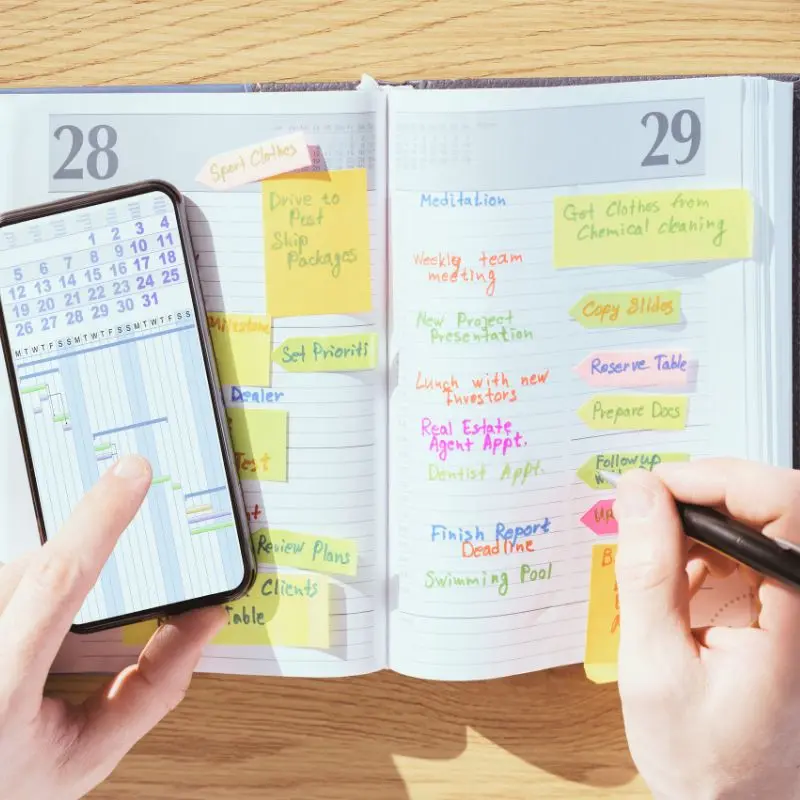 28
Sport Clothes
Drive to
Post
Skip
Packages
Milestone
Set Prioriti
Dealer
Test
Review Plans
Clients
Table
1 2 3 4
5 6 7 8 9 10 11
12 13 14 15 16 17 18
19 20 21 22 23 24 25
26 27 28 29 30 31
M T W T F S S M T W T F S S M T W T F S S
29
Meditation
Weekly team
meeting
New Project
Presentation
Lunch with new
Investors
Real Estate
Agent Appt.
Dentist Appt.
Finish Report
Deadline
Swimming Pool
Get Clothes from
Chemical cleaning
Copy Slides
Reserve Table
Prepare Docs
Follow up